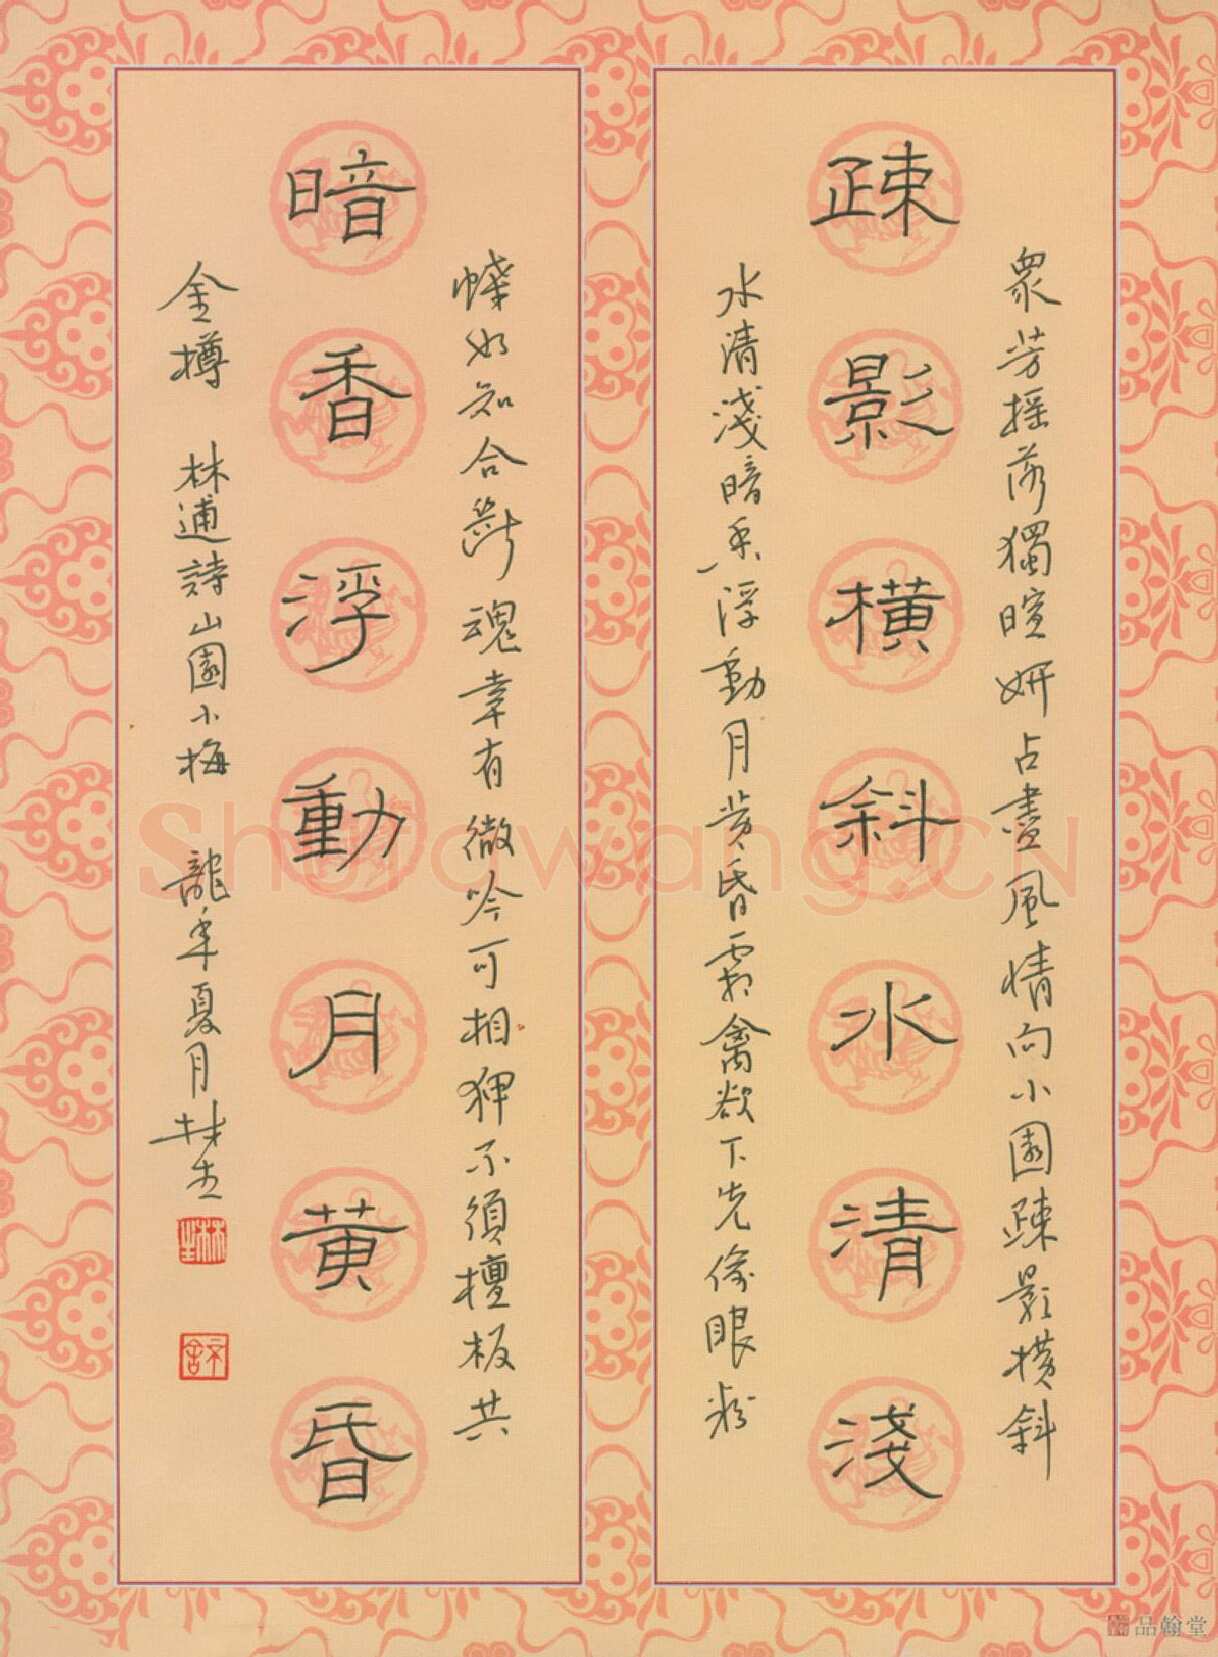 疎影橫斜水清淺
眾芳搖落獨暄妍占盡風情向小園疎影横斜
水清淺暗香浮動月黄昏霜禽欲下先偷眼粉
暗香浮動月黄昏
蝶如知合斷魂幸有微吟可相狎不須檀板共
金樽 林逋詩山園小梅 龍年夏月
Shufawang.CN
品翰堂